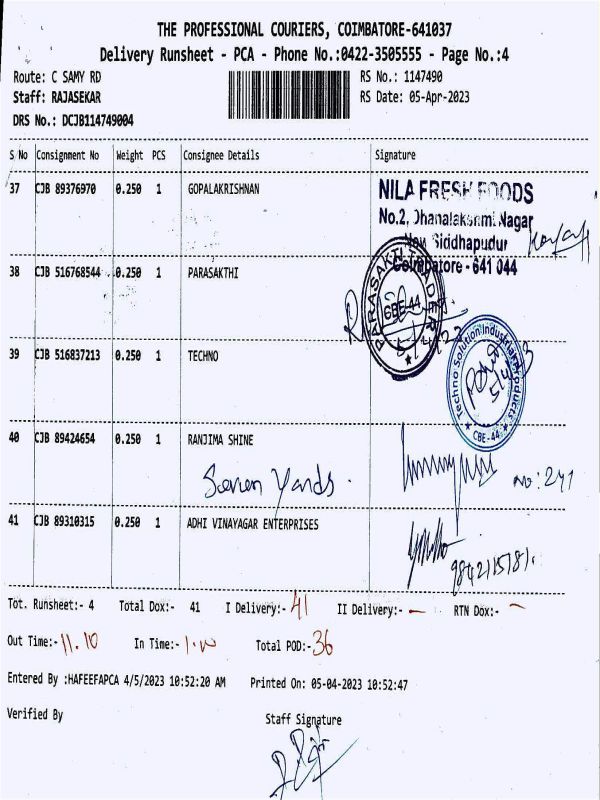 THE PROFESSIONAL COURIERS, COIMBATORE-641037
Delivery Runsheet - PCA - Phone No.:0422-3505555 - Page No.:4
Route: C SAMY RD
RS No.: 1147490
Staff: RAJASEKAR
RS Date: 05-Apr-2023
DRS No.: DCJB114749004
S No Consignment No Weight PCS Consignee Details Signature
37 CJB 89376970 0.250 1 GOPALAKRISHNAN
NILA FRESH FOODS
No.2, Dhanalakshmi Nagar
New Siddhapudur
Coimbatore - 641 044
38 CJB 516768544 0.250 1 PARASAKTHI
PARASAKTI TRADER
CBE-44
39 CJB 516837213 0.250 1 TECHNO
Techno Solution Industrial Products
CBE-44
40 CJB 89424654 0.250 1 RANJIMA SHINE
Seven Yards.
no: 241
41 CJB 89310315 0.250 1 ADHI VINAYAGAR ENTERPRISES
Tot. Runsheet:- 4 Total Dox:- 41 I Delivery:- 41 II Delivery:- — RTN Dox:- —
Out Time:- 11.10 In Time:- Total POD:- 36
Entered By :HAFEEFAPCA 4/5/2023 10:52:20 AM Printed On: 05-04-2023 10:52:47
Verified By
Staff Signature